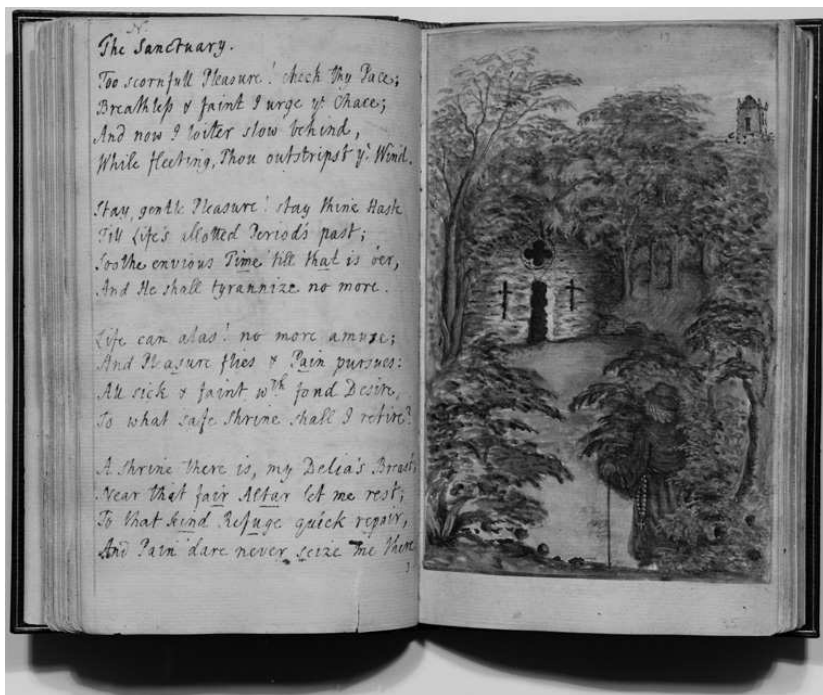 The Sanctuary.
Too scornfull Pleasure! check thy Pace;
Breathless & faint I urge yᵉ Chace;
And now I loiter slow behind,
While fleeting, Thou outstripst yᵉ Wind.
Stay, gentle Pleasure! stay thine Hast
Till Life's allotted Period's past;
Soothe envious Time 'till that is o'er,
And He shall tyrannize no more.
Life can alas! no more amuse;
And Pleasure flies & Pain pursues:
All sick & faint wᵗʰ fond Desire,
To what safe Shrine shall I retire?
A Shrine there is, my Delia's Breast;
Near that fair Altar let me rest;
To that kind Refuge quick repair,
And Pain dare never seize me there